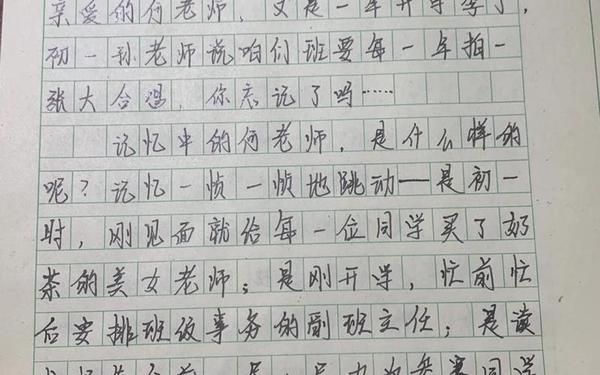 亲爱的何老师，又是一年开学季了，
初一孙老师说咱们班要每一年拍一
张大合温，你忘记了吗……
记忆中的何老师，是什么样的
呢？记忆一桢一桢地跳动——是初一
时，刚见面就给每一位同学买了奶
茶的美女老师；是刚开学，忙前忙
后要排班级事务的副班主任；是读